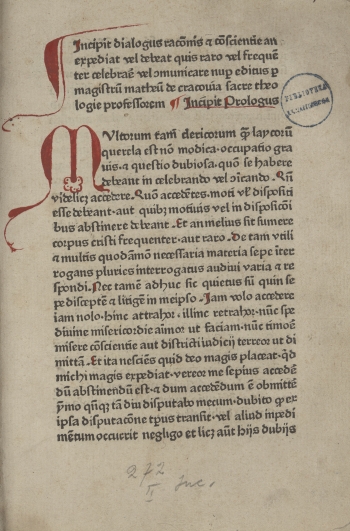 Incipit dialogus racõnis ⁊ cõscientie an
expediat vel debeat quis raro vel frequẽ
ter celebrare vel cõmunicare nup editus ꝑ
magistrũ matheũ de cracovia sacre theo
logie professorem ¶ Incipit Prologus
MVltorum tam clericorum ꝙ laycorũ
querela est nõ modica·occupatio gra
uis·⁊ questio dubiosa·quõ se habere
debeant in celebrando vel cõicando·
videlicꝫ accedere·Quõ accedẽtes·moti vel dispositi
esse debeant·aut quibꝫ motiuis vel in disposicõi
bus abstinere debeant·Et an melius sit sumere
corpus cristi frequenter·aut raro·De tam vtili
⁊ multis quodãmõ necessaria materia sepe ĩter
rogans plurics interrogatus audiui varia ⁊ re
spondi·Nec tamẽ adhuc sic quietus sũ quin se
pe disceptẽ ⁊ litigẽ in meipso·Iam volo accedere
iam nolo·hinc attrahor·illinc retrahor·nũc spe
diuine misericordie aĩmor ut faciam·nũc timoẽ
misere cõscientie aut districti iudicij terreor ut di
mittã·Et ita nesciẽs quid deo magis placeat·qd
michi magis expediat·vereor me sepius accedẽ
dũ abstinendũ est·⁊ dum accedẽdum ẽ obmittẽ
ymo qñqꝫ tã diu disputato mecum·dubito ꝙ ex
ipsa disputacõne tps transit·vel aliud inpedi
mẽtum occurrit negligo et licꝫ aũt hijs dubijs
272
II Inc.